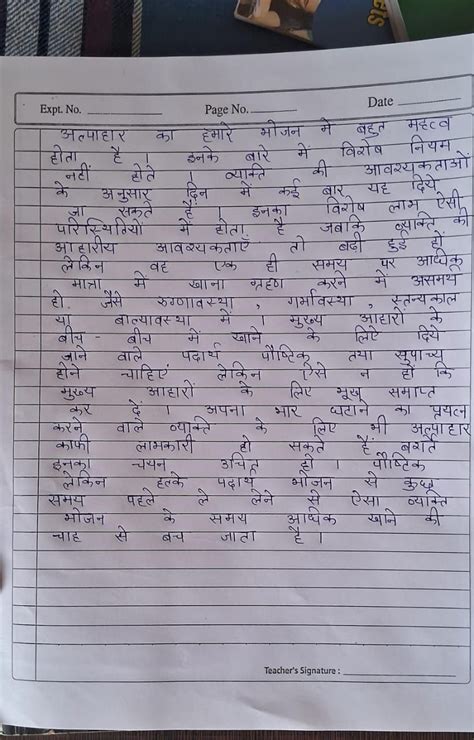 Expt. No.
Page No.
Date
अल्पाहार का हमारे भोजन में बहुत महत्व
होता है । इनके बारे में विशेष नियम
नहीं होते । व्यक्ति की आवश्यकताओं
के अनुसार दिन में कई बार यह दिये
जा सकते हैं । इनका विशेष लाभ ऐसी
परिस्थितियों में होता है जबकि व्यक्ति की
आहारीय आवश्यकताएँ तो बढ़ी हुई हों
लेकिन वह एक ही समय पर अधिक
मात्रा में खाना ग्रहण करने में असमर्थ
हो. जैसे रुग्णावस्था , गर्भावस्था , स्तन्यकाल
या बाल्यावस्था में । मुख्य आहारों के
बीच - बीच में खाने के लिए दिये
जाने वाले पदार्थ पौष्टिक तथा सुपाच्य
होने चाहिएं लेकिन ऐसे न हों कि
मुख्य आहारों के लिए भूख समाप्त
कर दें । अपना भार घटाने का प्रयत्न
करने वाले व्यक्ति के लिए भी अल्पाहार
काफी लाभकारी हो सकते हैं बशर्ते
इनका चयन उचित हो । पौष्टिक
लेकिन हल्के पदार्थ भोजन से कुछ
समय पहले ले लेने से ऐसा व्यक्ति
भोजन के समय अधिक खाने की
चाह से बच जाता है ।
Teacher's Signature :